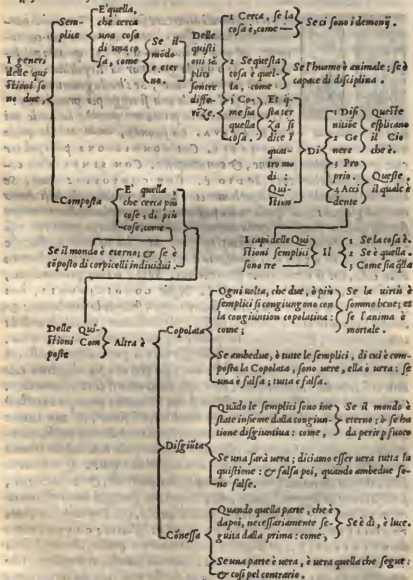 I generi
delle qui
stioni so
no due,
Sem-
plice
E' quella,
che cerca
una cosa
di una co
sa, come
Se il
mōdo
è eter
no.
Delle
quisti
oni sē
plici
sontre
differ
ēze.
1 Cerca, se la
cosa è, come
Se ci sono i demonij.
2 Se questa
cosa è quel-
la, come:
Se l'huomo è animale; se è
capace di disciplina.
3 Co-
me sia
quella
cosa.
Et q̄
sta ter
za si
dice i
quat
tro mo
di:
Qui-
stion
Di
1 Difi
nitiōe
2 Ge
nere
Queste
esplicano
il Cio
che è.
3 Pro
prio.
4 Acci
dente
Queste.
il quale è
Composta
E' quella,
che cerca più
cose, di più
cose, come
Se il mondo è eterno; & se è
cōposto di corpicelli individui.
I capi delle Qui
stioni semplici
sono tre
Il
1 Se la cosa è.
2 Se è quella.
3 Come sia q̄lla
Delle Qui-
stioni Com
poste
Altra è
Copolata
Ogni uolta, che due, ò più
semplici si congiungono con
la congiuntion copolatiua:
come;
Se la uirtù è
sommo bene; et
se l'anima è
mortale.
Se ambedue, ò tutte le semplici, di cui è com-
posta la Copolata, sono uere, ella è uera: se
una è falsa; tutta è falsa.
Disgiūta
Quādo le semplici sono ine
state insieme dalla congiun-
tione disgiuntiua: come,
Se il mondo è
eterno; ò se ha
da perir p fuoco
Se una sarà uera; diciamo esser uera tutta la
quistione: & falsa poi, quando ambedue so-
no false.
Cōnessa
Quando quella parte, che è
dapoi, necessariamente se-
guita dalla prima: come;
Se è dì, è luce.
Se una parte è uera, è uera quella che segue:
& cosi pel contrario.